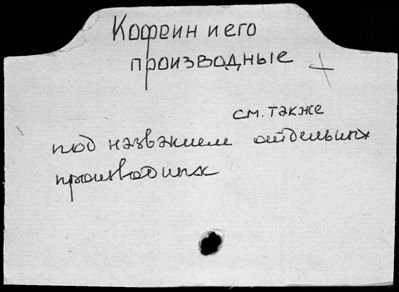 Кофеин и его
производные
см. также
под названием отдельных
производных